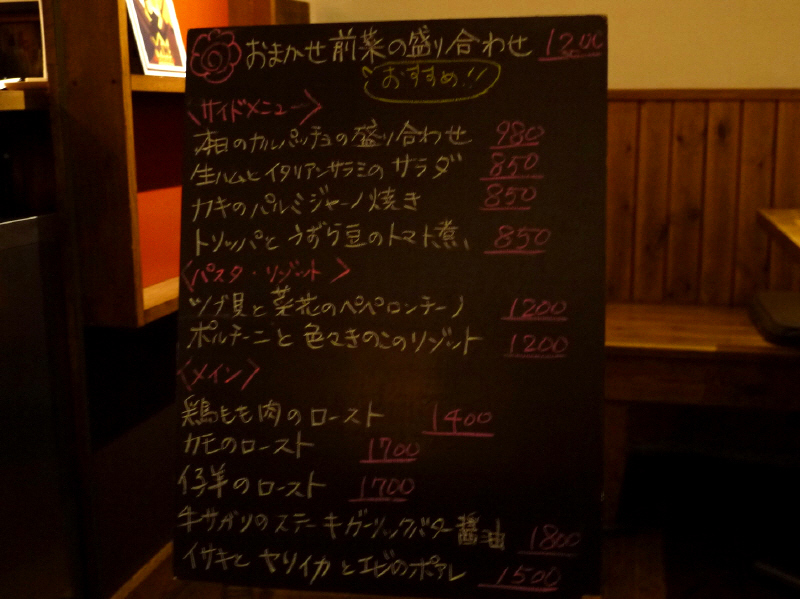 おまかせ前菜の盛り合わせ 1200
おすすめ!!
〈サイドメニュー〉
本日のカルパッチョの盛り合わせ 980
生ハムとイタリアンサラミのサラダ 850
カキのパルミジャーノ焼き 850
トリッパとうずら豆のトマト煮、 850
〈パスタ・リゾット〉
ツブ貝と菜花のペペロンチーノ 1200
ポルチーニと色々きのこのリゾット 1200
〈メイン〉
鶏もも肉のロースト 1400
カモのロースト 1700
仔羊のロースト 1700
牛サガリのステーキガーリックバター醤油 1800
イサキとヤリイカとエビのポアレ 1500